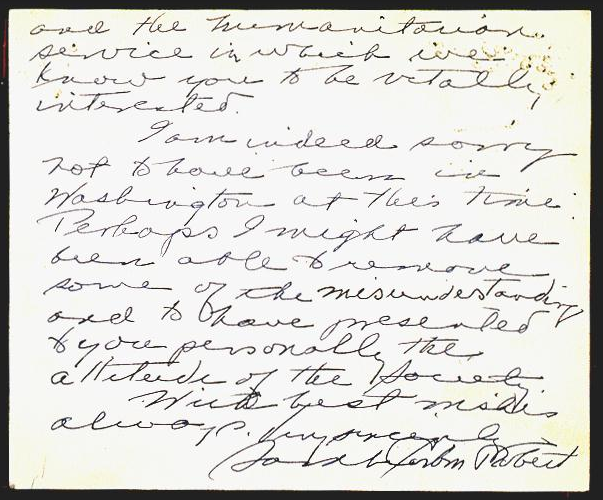 and the humanitarian
service in which we
know you to be vitally
interested.
I am indeed sorry
not to have been in
Washington at this time.
Perhaps I might have
been able to remove
some of the misunderstanding
and to have presented
to you personally the
attitude of the Society.
With best wishes
always, Very sincerely,
Sarah Corbin Robert